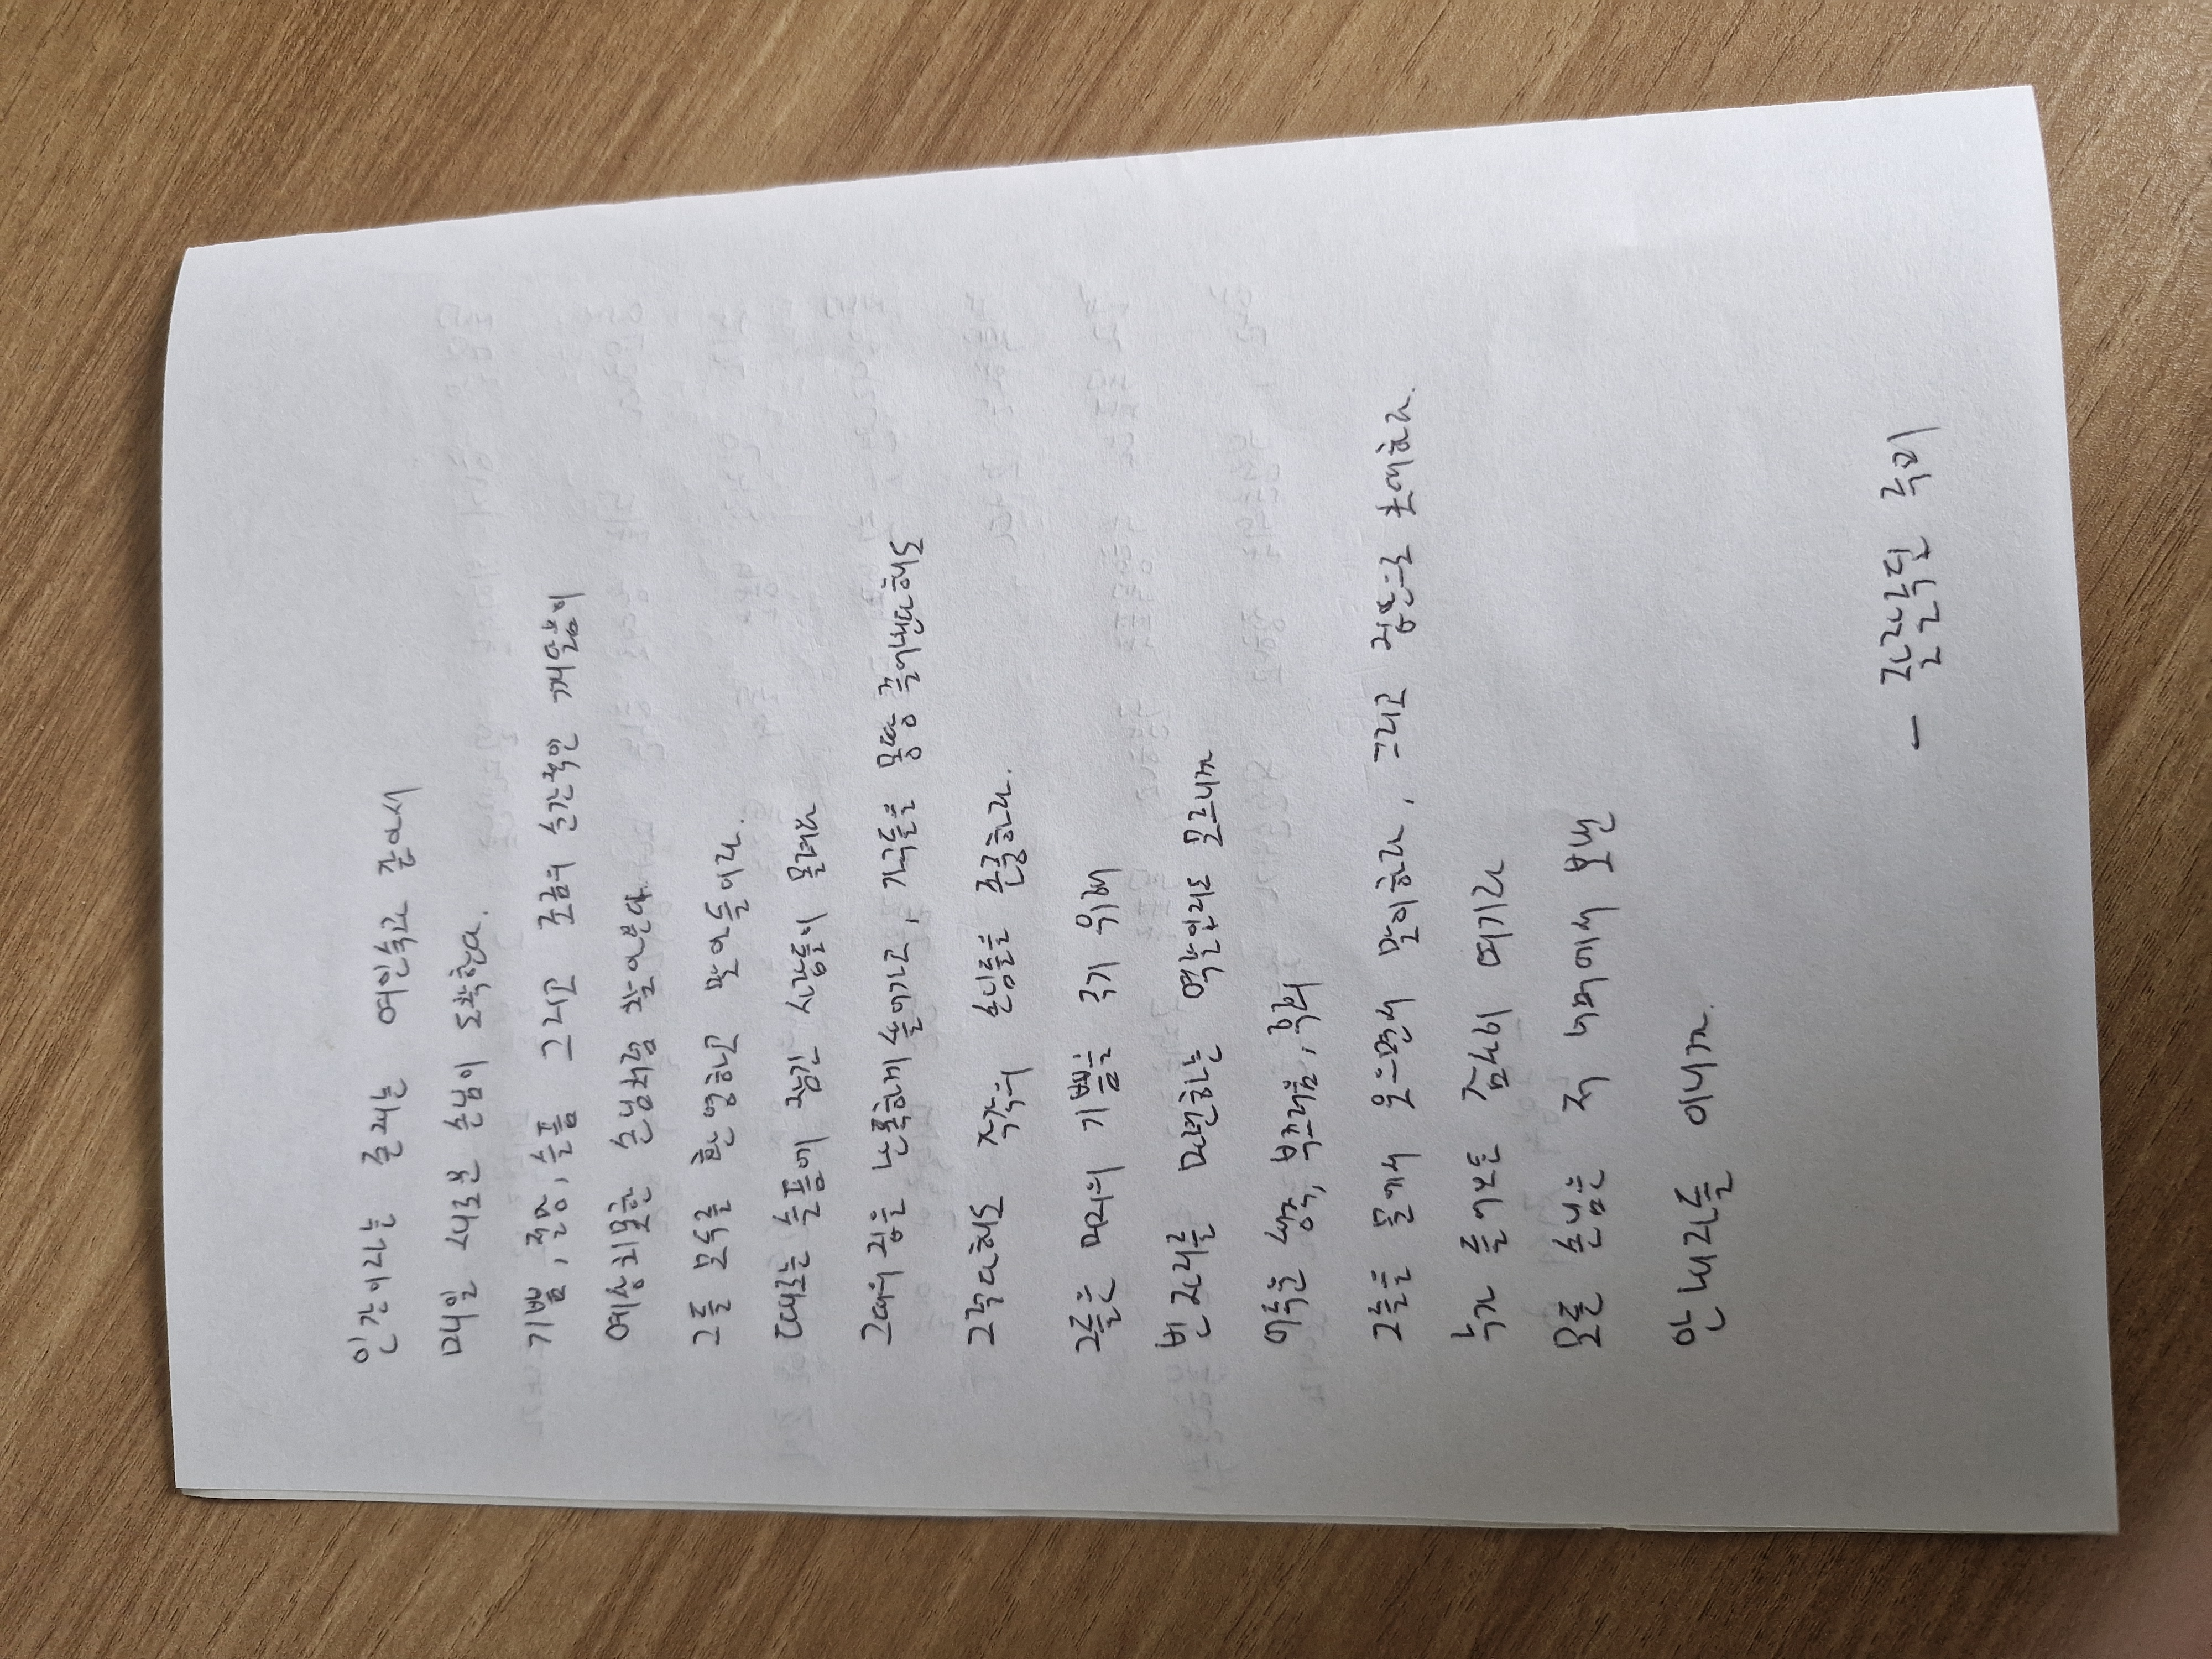 인간이라는 존재는 여인숙과 같아서
매일 새로운 손님이 도착한다.
기쁨, 절망, 슬픔 그리고 조금의 순간적인 깨달음이
예상치 못한 손님처럼 찾아온다
그들 모두를 환영하고 맞아들이라.
때로는 슬픔에 잠긴 사람들이 몰려와
그대의 집을 난폭하게 쓸어가고, 가구들을 몽땅 끌어낸다해도
그렇다해도 각각의 손님들을 존중하라.
그들은 며의 기쁨을 주기 위해
빈 자리를 마련하는 역할인지도 모르니까
어두운 생각, 부끄러움, 후회
그들을 문에서 웃으면서 맞이하라, 그리고 집안으로 초대하라.
누가 들어오든 감사히 여기라
모든 손님은 저 너머에서 보낸
안내자들 이니까.
- 잘랄루딘 루미